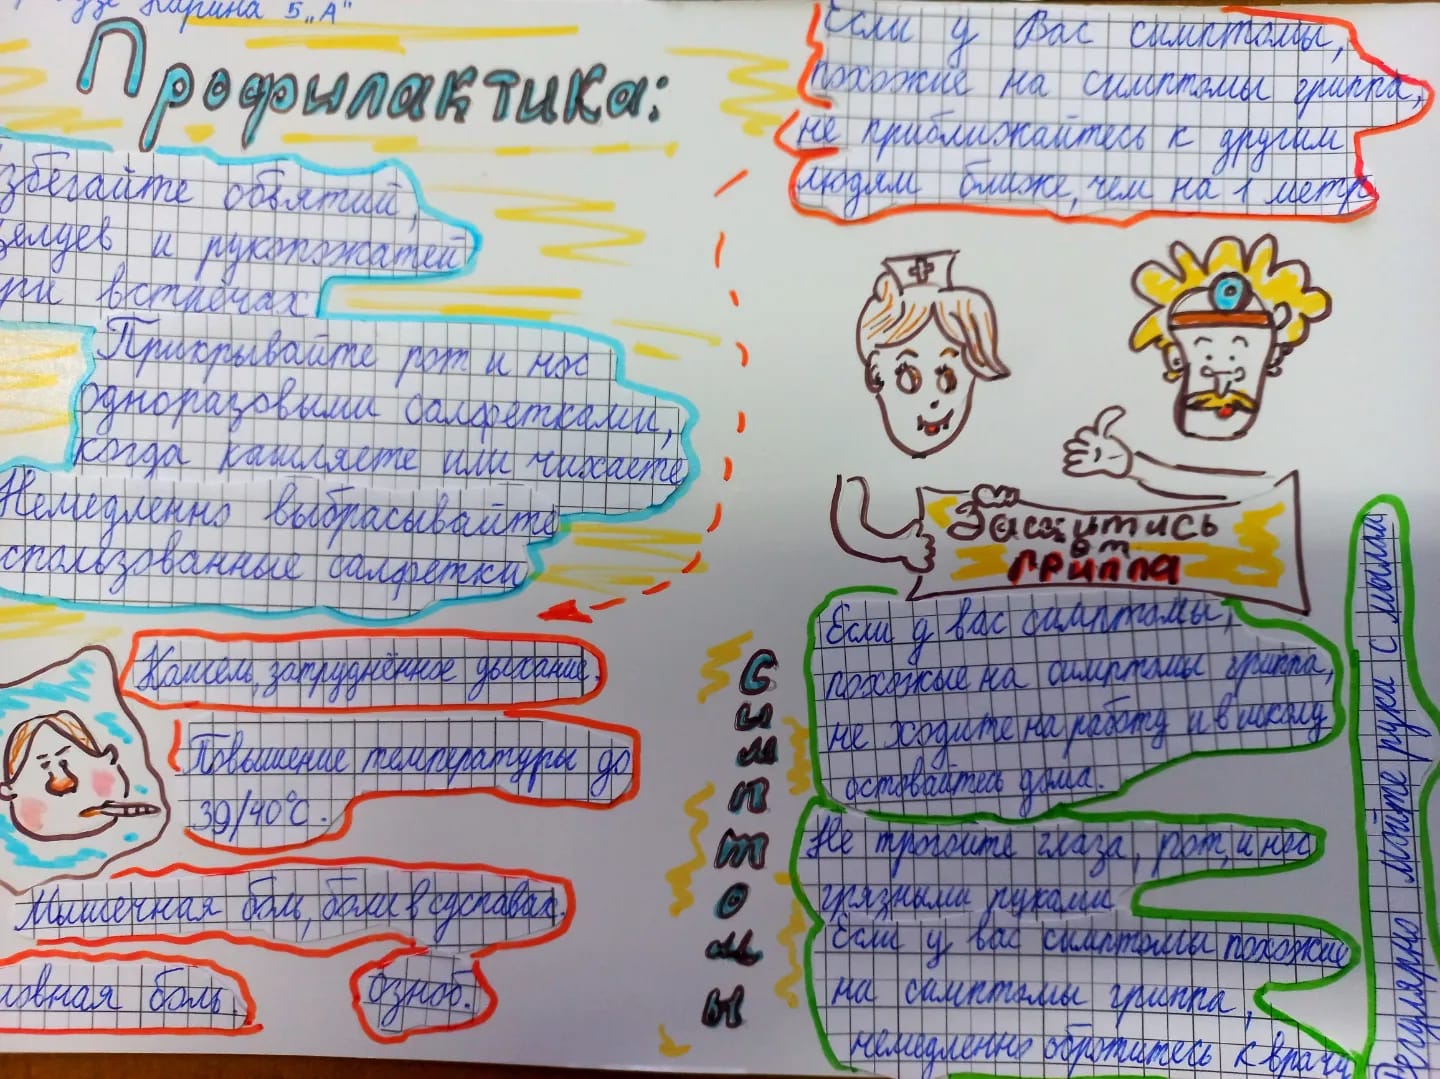 Карина 5 „А"
Профилактика:
збегайте объятий,
елуев и рукопожатей
ри встречах
Прикрывайте рот и нос
одноразовыми салфетками,
когда кашляете или чихаете
Немедленно выбрасывайте
спользованные салфетки
Кашель, затруднённое дыхание.
Повышение температуры до
39/40°С.
Мышечная боль, боли в суставах.
ловная боль.
озноб.
Симптомы
Если у Вас симптомы,
похожие на симптомы гриппа,
не приближайтесь к другим
людям ближе, чем на 1 метр
Защитись
от
гриппа
Если у вас симптомы,
похожые на симптомы гриппа,
не ходите на работу и в школу
оставайтесь дома.
Не трогайте глаза, рот, и нос
грязными руками
Если у вас симптомы похожие
на симптомы гриппа,
немедленно обротитесь к врачу
Регулярно мойте руки с мылом